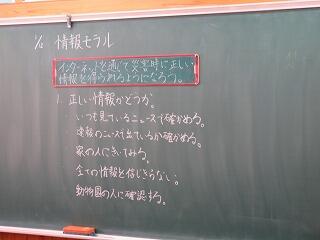 情報モラル
インターネットを通じて災害時に正しい
情報を得られるようになろう。
1. 正しい情報かどうか。
いつも見ているニュースで確かめる。
複数のニュースで出ているか確かめる。
家の人にきいてみる。
全ての情報を信じきらない。
動物園の人に確認する。